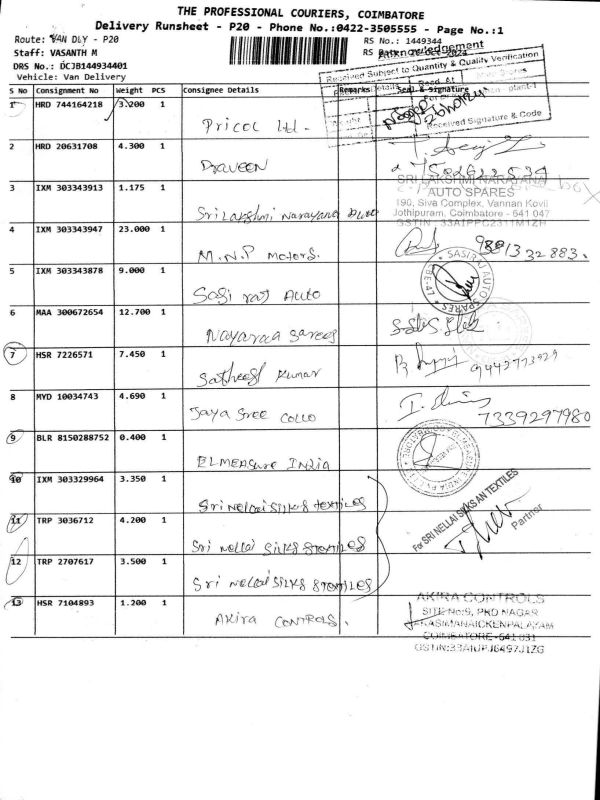 THE PROFESSIONAL COURIERS, COIMBATORE
Delivery Runsheet - P20 - Phone No.:0422-3505555 - Page No.:1
Route: VAN DLY - P20
RS No.: 1449344
Staff: VASANTH M
Acknowledgement
DRS No.: DCJB144934401
Received Subject to Quantity & Quality Verification
Vehicle: Van Delivery
S No Consignment No Weight PCS Consignee Details Remarks Seal & Signature
Received Signature & Code
1 HRD 744164218 3.200 1
Pricol Ltd.
2 HRD 20631708 4.300 1
Praveen
3 IXM 303343913 1.175 1
Sri Lakshmi Narayana
SRI LAKSHMI NARAYANA
AUTO SPARES
190, Siva Complex, Vannan Kovil
Jothipuram, Coimbatore - 641 047
4 IXM 303343947 23.000 1
M.N.P Motors.
9891332883.
5 IXM 303343878 9.000 1
Sasi raj Auto
SASIRAJ AUTO SPARES
6 MAA 300672654 12.700 1
7 HSR 7226571 7.450 1
Satheesh Kumar
9442773929
8 MYD 10034743 4.690 1
Jaya Sree
7339297980
9 BLR 8150288752 0.400 1
ELMEASURE INDIA
10 IXM 303329964 3.350 1
Sri Nellai Silks textiles
For SRI NELLAI SILKSAN TEXTILES
Partner
11 TRP 3036712 4.200 1
Sri Nellai Silks
12 TRP 2707617 3.500 1
Sri Nellai Silks
13 HSR 7104893 1.200 1
Akira CONTROLS.
AKIRA CONTROLS
SITE No:9, PKD NAGAR
COIMBATORE-641 031